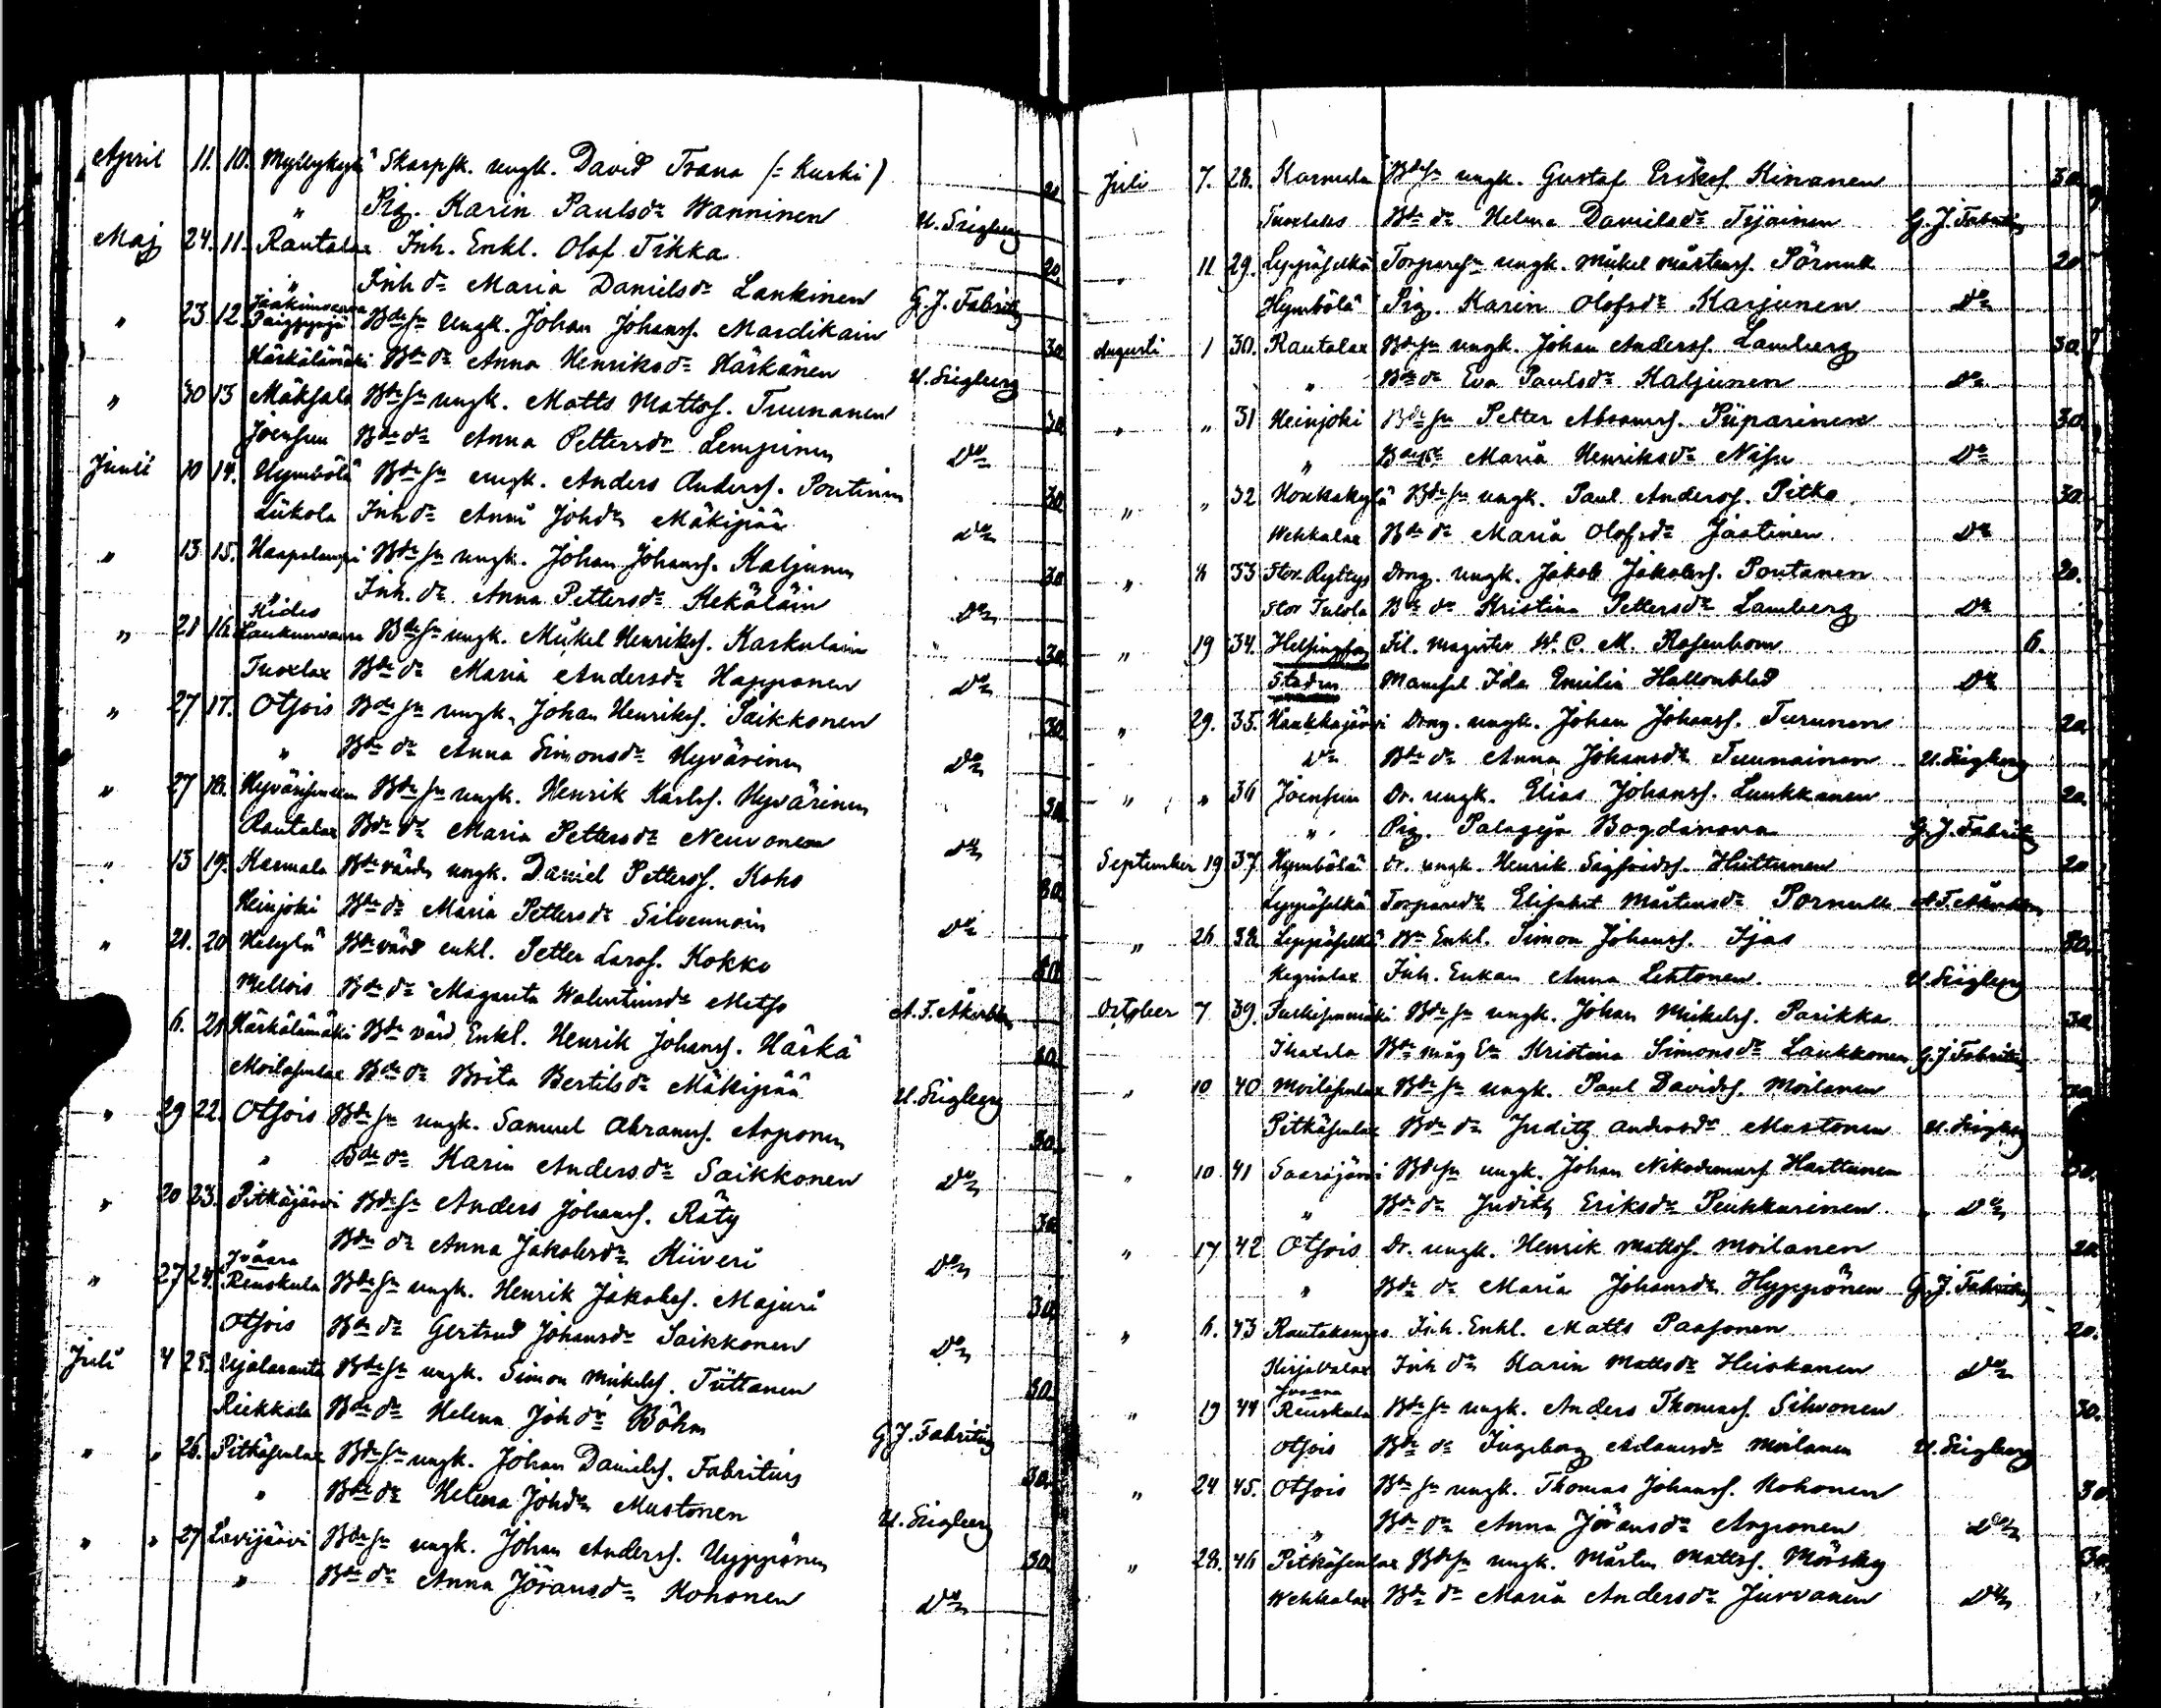 April 11. 10. Myllykylä Skarpsk. ungk. David Trana (= Kurki) 20
" Pig. Karin Paulsdr Wanninen U. Sirgberg
Maj 24. 11. Rautalax Inh. Enkl. Olof Tikka 20.
" Inh dr Maria Danielsdr Lankinen G. J. Fabritius
" 23 12. Jaakimvaara Bdesn Ungk. Johan Johanss. Mardikain 30.
Härkälämäki Bde dr Anna Henriksdr Härkönen U. Sirgberg
" 30 13 Mäksalo Bdesn ungk. Matts Mattss. Tuunanen 30.
Joensuu Bde dr Anna Pettersdr Lempinen Do
Junii 10 14. Hymbölä Bde sn ungk. Anders Anderss. Pontinen 30
Liikola Inh dr Anni Johdr Mäkipää Do
" 13 15. Haapalampi Bde sn ungk. Johan Johanss. Kaljunen 30
Inh. dr Anna Pettersdr Kekäläin Do
" 21 16 Kides Bdesn ungk. Mikel Henrikss. Karkulain 30.
Tuoxlax Bde dr Maria Andersdr Happonen Do
" 27 17. Otsois Bde sn ungk. Johan Henrikss. Saikkonen 30.
" Bde dr Anna Simonsdr Hyvärinen Do
" 27 18. Bde sn ungk. Henrik Karlss. Hyvärinen 30
Rautalax Bde dr Maria Pettersdr Neuvonen Do
" 13 19. Karmala Bde värd ungk. Daniel Petterss. Koho 30.
Heinjoki Bde dr Maria Pettersdr Silvennoin Do
" 21. 20 Helylä Bde värd enkl. Petter Larss. Kokko
Mellois Bde dr Magareta Walentinsdr Metso A. F. Åkerblom
6. 21 Härkälämäki Bde värd Enkl. Henrik Johanss. Härkä 30.
Moilasenlax Bde dr Brita Bertilsdr Mäkipää U. Sirgberg
" 29 22. Otsois Bde sn ungk. Samuel Abramss. Arponen 30.
" Bde dr Karin Andersdr Saikkonen Do
" 20 23. Pitkäjärvi Bde sn Anders Johanss. Räty 30
Bde dr Anna Jakobsdr Kiiveri Do
" 27 24. Jvaara Reuskula Bde sn ungk. Henrik Jakobss. Majuri 30.
Otsois Bde dr Gertrud Johansdr Saikkonen Do
Juli 4 25. Bde sn ungk. Simon Mikelss. Tiittanen 30.
Riekkala Bde dr Helena Joh dr Böhm G J. Fabritius
" " 26. Pitkäsenlax Bde sn ungk. Johan Danielss. Fabritius 30.
" Bde dr Helena Johdr Mustonen U. Sirgberg
" " 27 Lavijärvi Bde sn ungk. Johan Anderss. Hyppönen 30.
" Bde dr Anna Jöransdr Kohonen Do
Juli 7. 28. Karmala Bdesn ungk. Gustaf Erikss. Kinanen 30.
Tuoxlaks Bde dr Helena Danielsdr Ijäinen G. J. Fabritius
" 11 29. Leppäselkä Torparesn ungk. Mikel Mårtenss. Pörnull 20
Hymbölä Pig. Karin Olofsdr Karjunen Do
Augusti 1 30. Rautalax Bdesn ungk. Johan Anderss. Lamberg 30.
" Bde dr Eva Paulsdr Kaljunen Do
" " 31 Heinjoki Bde sn Petter Abramss. Piiparinen 30.
" Bde dr Maria Henriksdr Do
" " 32 Koukakylä Bde sn ungk. Paul Anderss. Pitko 30.
Wehkalax Bde dr Maria Olofsdr Jäätinen Do
" " 33 Stor Ryttys Dräng. ungk. Jakob Jakobss. Poutanen 20.
Stor Tulola Bde dr Kristina Pettersdr Lamberg Do
" 19 34. Helsingfors Fil. Magister W. C. M. Rosenbom 6.
Staden Mamsel Ida Emilia Hallonblad Do
" 29. 35. Kaukkajärvi Dräng. ungk. Johan Johanss. Turunen 20
Do Bde dr Anna Johansdr Tuunainen U. Sirgberg
" " 36 Joensuu Dr. ungk. Elias Johanss. Luukkanen 20
" Pig. Palageja Bogdanova G. J. Fabritius
September 19 37. Hymbölä dr. ungk. Henrik Sigfridss. Huttunen 20
Leppäselkä Torparedr Elisabet Mårtensdr Pornull A. F. Åkerblom
" 26 38. Leppäselkä Bde Enkl. Simon Johanss. Ijäs 30.
Inh. Enkan Anna Lehtonen. U. Sirgberg
October 7 39. Bde sn ungk. Johan Mikelss. Parikka 30
Ihaxela Bde måg Ea Kristina Simonsdr Laukkonen G. J. Fabritius
" 10 40 Moilasenlax Bde sn ungk. Paul Davidss. Moilanen 30
Pitkäsenlax Bde dr Judith Andersdr Mustonen U. Sirgberg
" 10 41 Saarijärvi Bdesn ungk. Johan Nikodemuss. Harttunen 30.
" Bde dr Judith Eriksdr Peukkurinen Do
" 17 42 Otsois Dr. ungk. Henrik Mattss. Moilanen 20
" Bde dr Maria Johansdr Hyppönen G. J. Fabritius
" 6. 43 Rautakangas Inh. Enkl. Matts Paasonen 20.
Kirjavalax Inh dr Karin Mattsdr Heiskanen Do
" 19 44 Jvaara Reuskula Bde sn ungk. Anders Thomass. Sihvonen 30.
Otsois Bde dr Ingeborg Adamsdr Moilanen U. Sirgberg
" 24 45. Otsois Bde sn ungk. Thomas Johanss. Kohonen 30
" Bde dr Anna Jöransdr Arponen Do
" 28. 46 Pitkäsenlax Bdesn ungk. Mårten Mattss. Mörsky 30
Wehkalax Bde dr Maria Andersdr Jurvanen Do